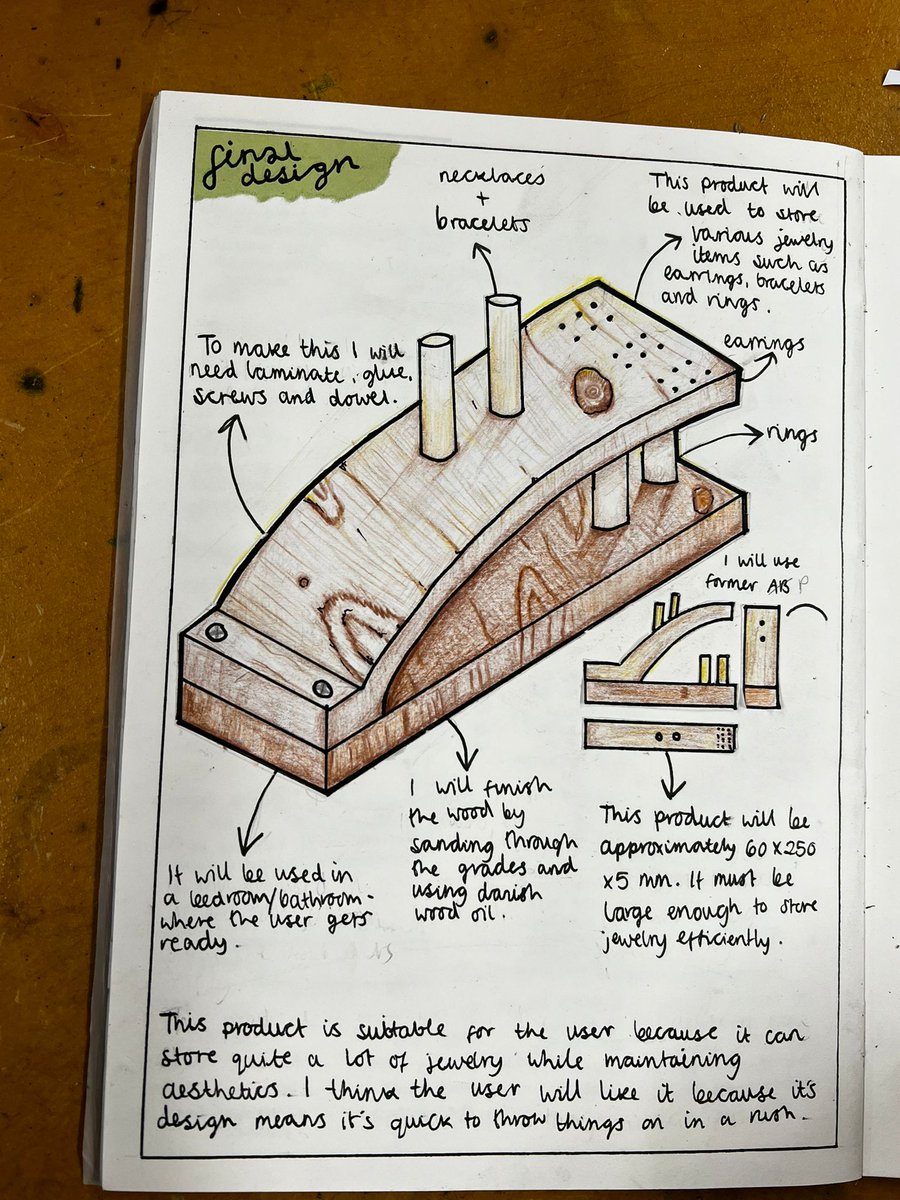 final
design
necklaces
+
bracelets
This product will
be used to store
various jewelry
items such as
earrings, bracelets
and rings.
To make this I will
need laminate, glue,
screws and dowel.
earrings
rings
I will use
former AB P
I will finish
the wood by
sanding through
the grades and
using danish
wood oil.
This product will be
approximately 60 x 250
x5 mm. It must be
large enough to store
jewelry efficiently.
It will be used in
a bedroom/bathroom -
where the user gets
ready.
This product is suitable for the user because it can
store quite a lot of jewelry while maintaining
aesthetics. I think the user will like it because it's
design means it's quick to throw things on in a rush.